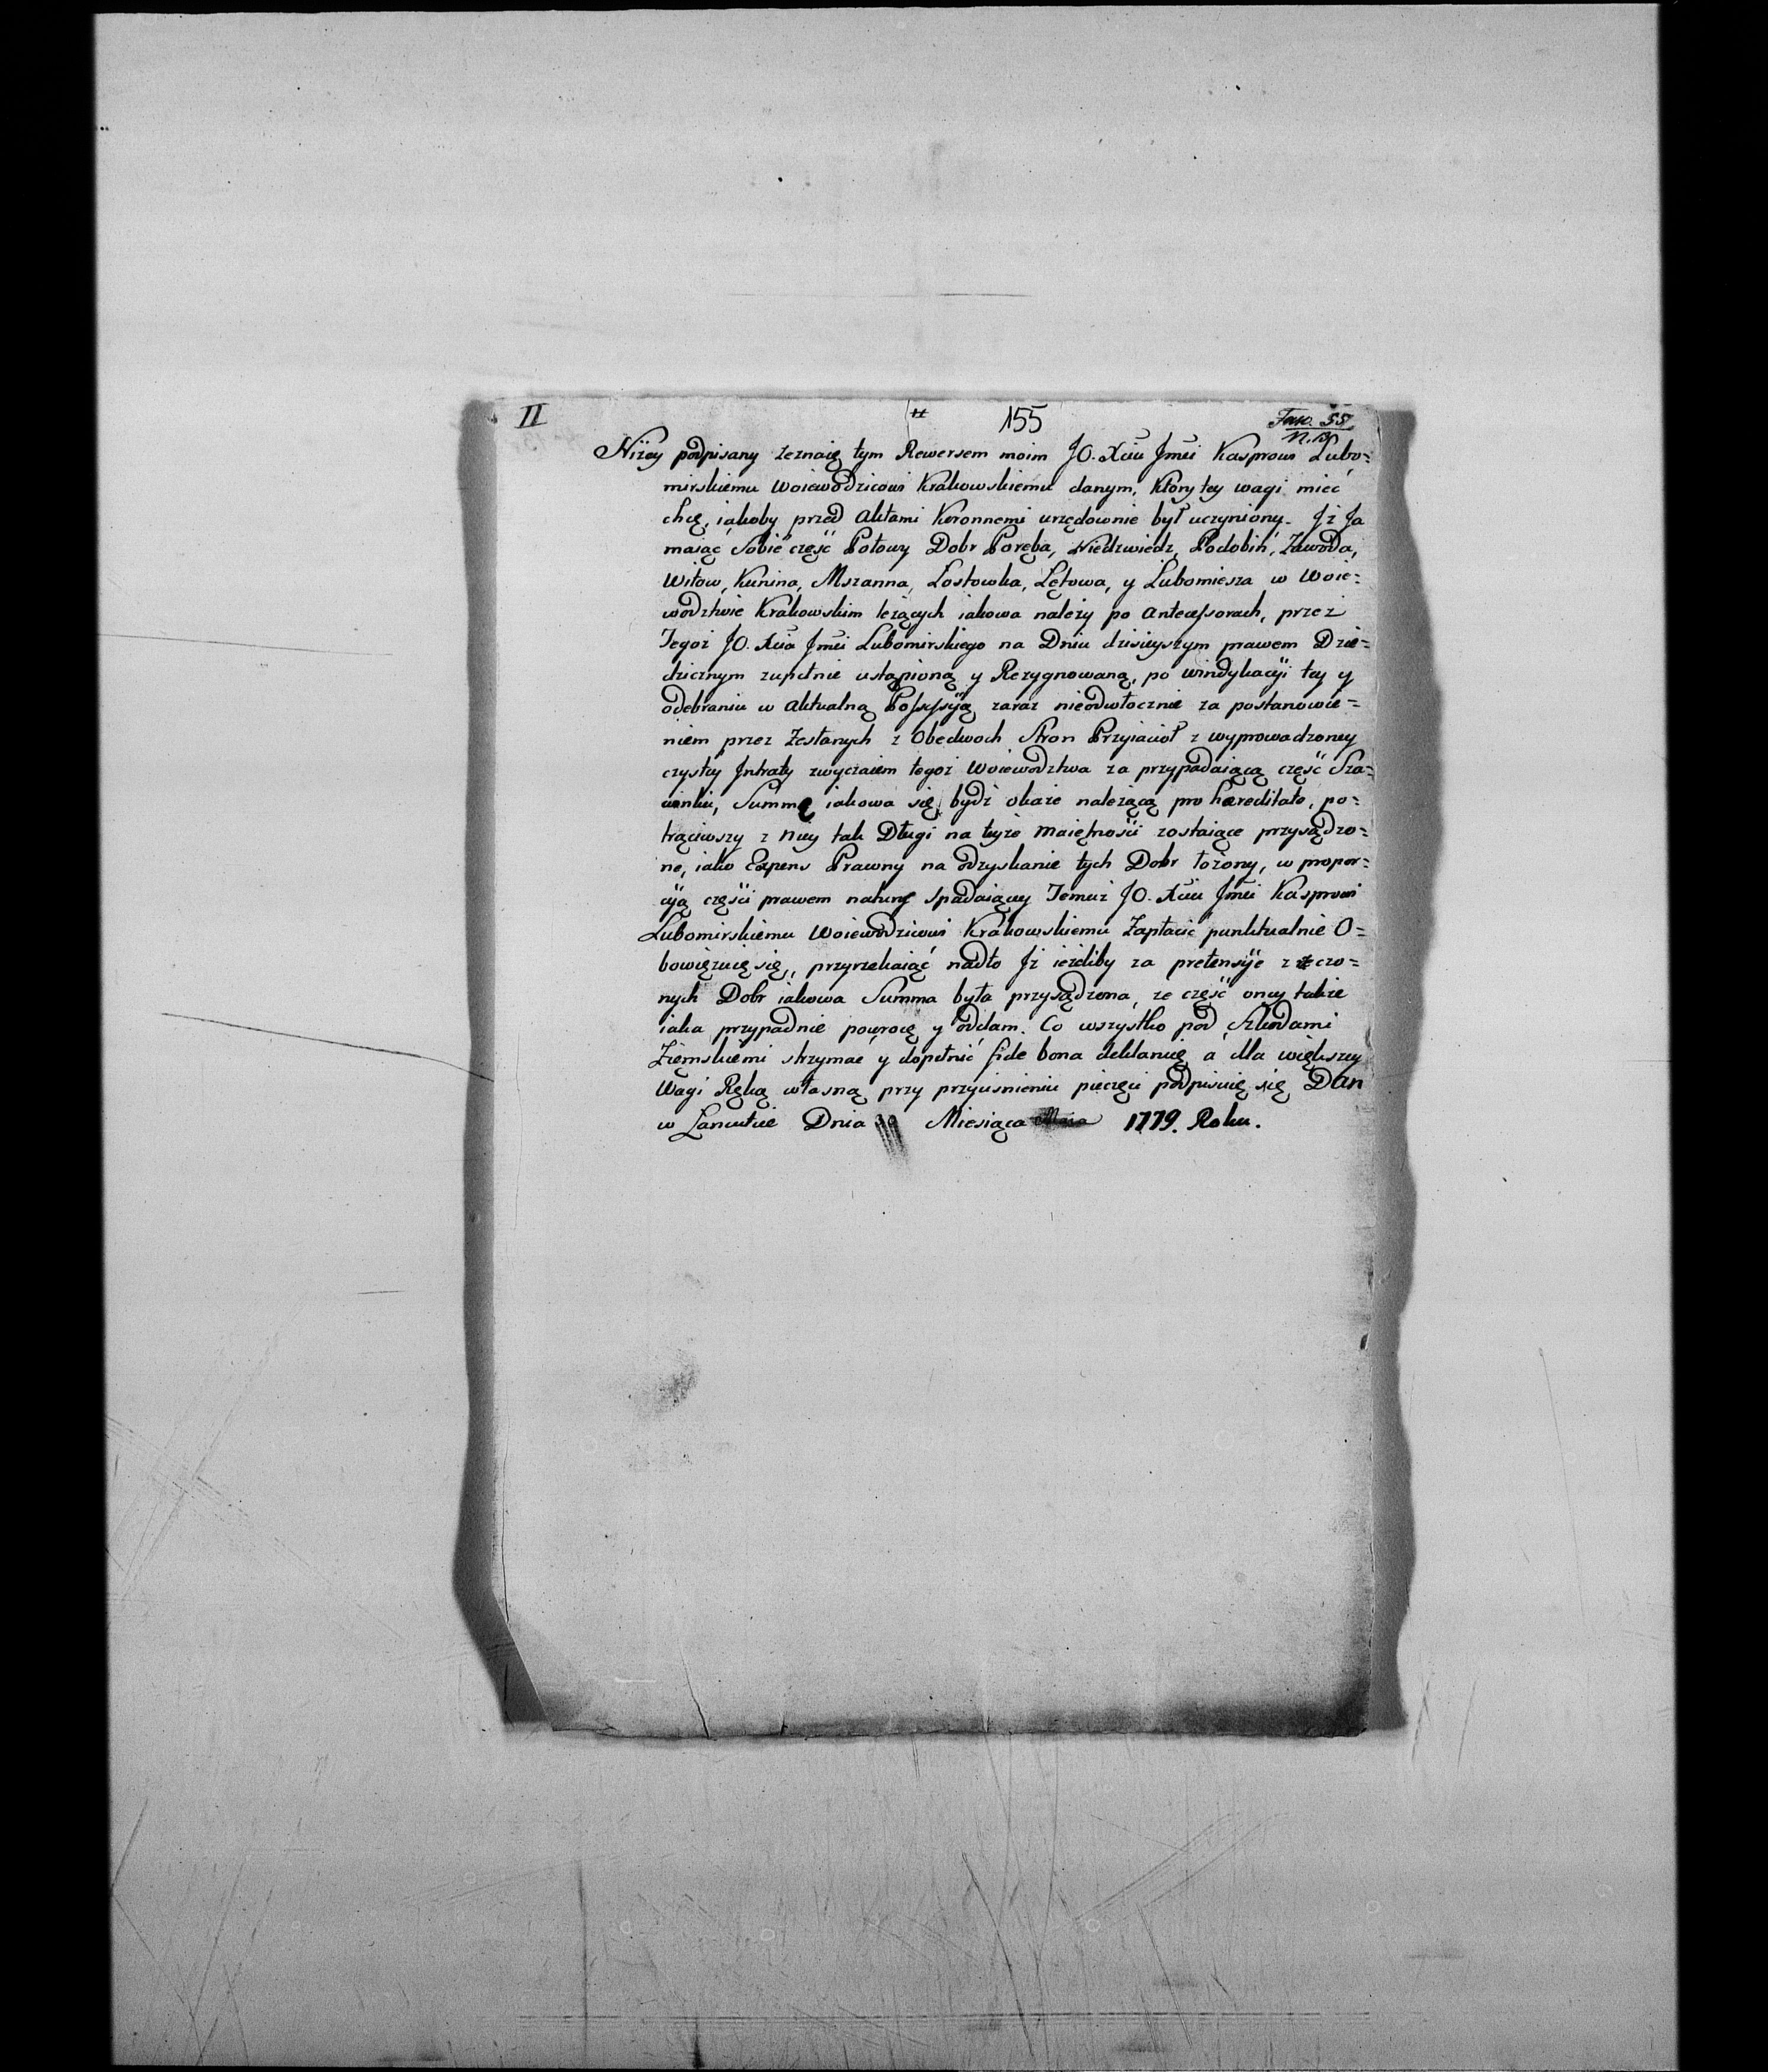 II 155 Fasc. 55.
N. 13
Niżey podpisany zeznaię tym Rewersem moim JO. Xciu Jmći Kasprowi Lubo=
mirskiemu Woiewodzicowi Krakowskiemu danym, Ktory tey wagi mieć
chcę, iakoby przed Aktami Koronnemi urzędownie był uczyniony. Iż Ja
maiąc Sobie część Połowy Dobr Poręba, Niedzwiedz, Podobin, Zawoda,
Witow, Kunina, Mszanna, Łostowka, Lętowa, y Lubomiesza w Woie=
wodztwie Krakowskim leżących iakowa należy po Antecessorach, przez
Tegoż JO. Xcia Jmći Lubomirskiego na Dniu dzisieyszym prawem Dzie=
dzicznym zupełnie ustąpioną y Rezygnowaną, po windykacyi tey y
odebraniu w Aktualną Possessyą zaraz nieodwłocznie za postanowie=
niem przez Zesłanych z Obedwoch Stron Przyiacioł z wyprowadzoney
czystey Intraty zwyczaiem tegoż Woiewodztwa za przypadaiącą część Sza=
cunku, Summę iakowa się bydź okaże należącą pro hæreditate, po=
trąciwszy z niey tak Długi na teyże Maiętności zostaiące przysądzo=
ne, iako Expens Prawny na odzyskanie tych Dobr łożony, w propor=
cyą części prawem natury Spadaiącey Temuż JO. Xciu Jmći Kasprowi
Lubomirskiemu Woiewodzicowi Krakowskiemu Zapłacić punktualnie O=
bowięzuię się, przyrzekaiąć nadto Iż ieżeliby za pretensye z rzeczo=
nych Dobr iakowa Summa była przysądzona, że część oney także
iaka przypadnie powrocę y oddam. Co wszystko pod Szkodami
Ziemskiemi strzymać y dopełnić fide bona deklaruię a dla większey
Wagi Ręką własną przy przyciśnieniu pieczęci podpisuię się Dan
w Łancutcie Dnia Miesiąca Maia 1779. Roku.